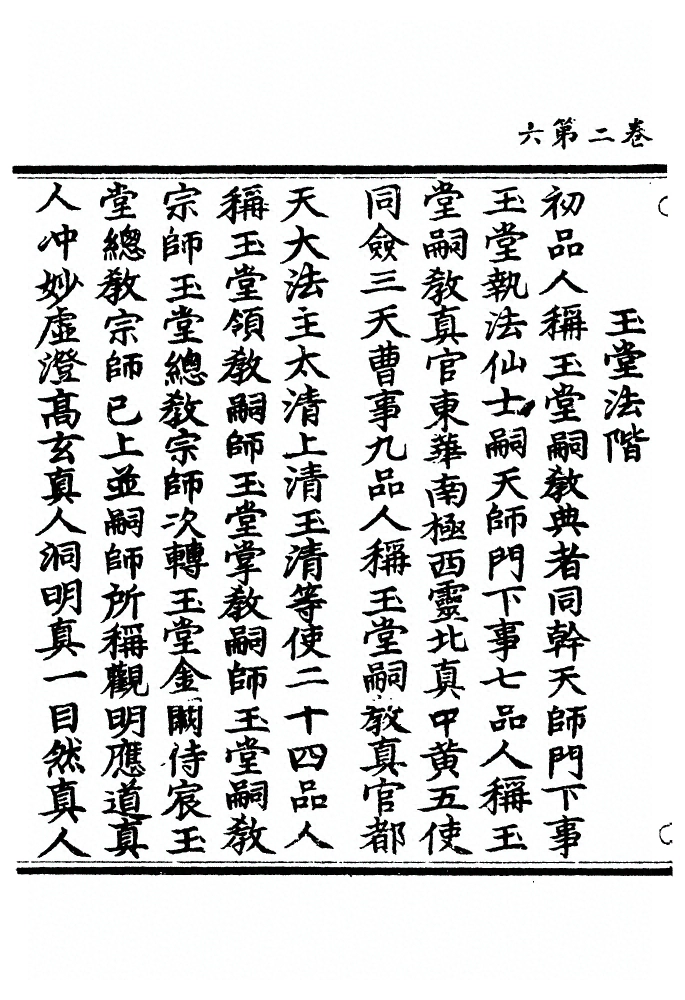 卷二第六
玉堂法階
初品人稱玉堂嗣教典者同幹天師門下事
玉堂執法仙士嗣天師門下事七品人稱玉
堂嗣教真官東華南極西靈北真中黃五使
同僉三天曹事九品人稱玉堂嗣教真官都
天大法主太清上清玉清等使二十四品人
稱玉堂領教嗣師玉堂掌教嗣師玉堂嗣教
宗師玉堂總教宗師次轉玉堂金闕侍宸玉
堂總教宗師已上並嗣師所稱觀明應道真
人冲妙虛澄高玄真人洞明真一自然真人